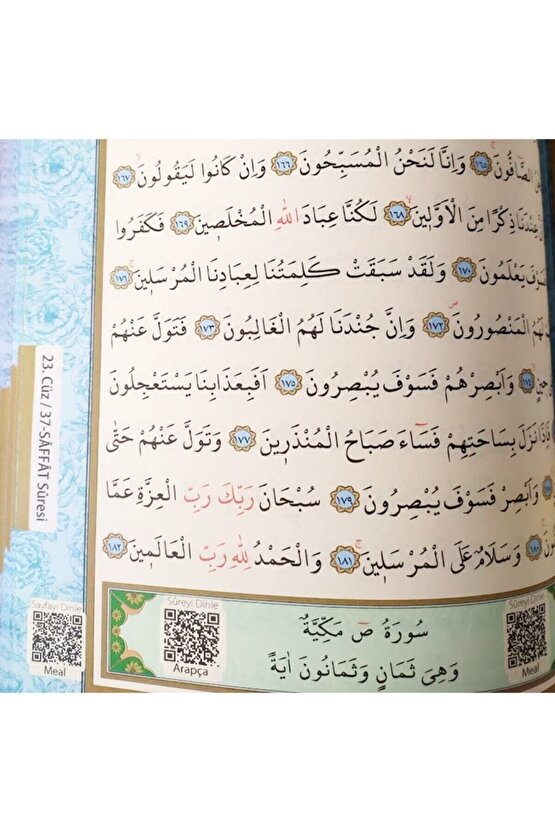 الصَّٓافُّونَۚ ﴿١٦٥﴾ وَاِنَّا لَنَحْنُ الْمُسَبِّحُونَ ﴿١٦٦﴾ وَاِنْ كَانُوا لَيَقُولُونَۙ ﴿١٦٧﴾
عِنْدَنَا ذِكْرًا مِنَ الْاَوَّلِينَۙ ﴿١٦٨﴾ لَكُنَّا عِبَادَ اللّٰهِ الْمُخْلَصِينَ ﴿١٦٩﴾ فَكَفَرُوا
يَعْلَمُونَ ﴿١٧٠﴾ وَلَقَدْ سَبَقَتْ كَلِمَتُنَا لِعِبَادِنَا الْمُرْسَلِينَۚ ﴿١٧١﴾
لَهُمُ الْمَنْصُورُونَۖ ﴿١٧٢﴾ وَاِنَّ جُنْدَنَا لَهُمُ الْغَالِبُونَ ﴿١٧٣﴾ فَتَوَلَّ عَنْهُمْ
﴿١٧٤﴾ وَاَبْصِرْهُمْ فَسَوْفَ يُبْصِرُونَ ﴿١٧٥﴾ اَفَبِعَذَابِنَا يَسْتَعْجِلُونَ
فَاِذَا نَزَلَ بِسَاحَتِهِمْ فَسَٓاءَ صَبَاحُ الْمُنْذَرِينَ ﴿١٧٧﴾ وَتَوَلَّ عَنْهُمْ حَتّٰى
وَاَبْصِرْ فَسَوْفَ يُبْصِرُونَ ﴿١٧٩﴾ سُبْحَانَ رَبِّكَ رَبِّ الْعِزَّةِ عَمَّا
﴿١٨٠﴾ وَسَلَامٌ عَلَى الْمُرْسَلِينَۚ ﴿١٨١﴾ وَالْحَمْدُ لِلّٰهِ رَبِّ الْعَالَمِينَ ﴿١٨٢﴾
23. Cüz / 37-SÂFFÂT Sûresi
Sayfayı Dinle
Meal
Sûreyi Dinle
Arapça
سُورَةُ صٓ مَكِّيَّةٌ
وَهِيَ ثَمَانٍ وَثَمَانُونَ اٰيَةً
Sûreyi Dinle
Meal